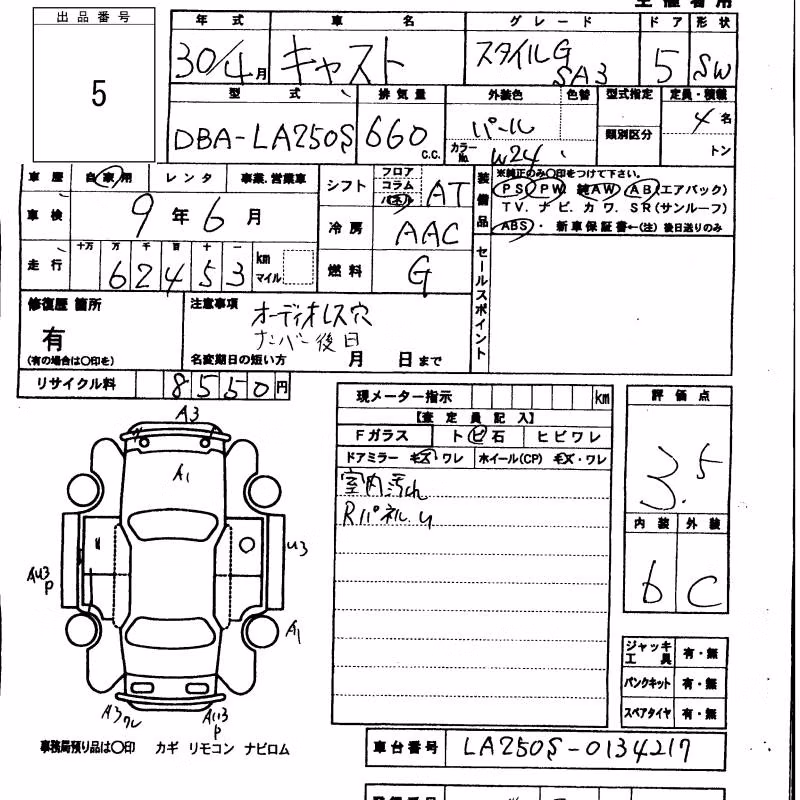 出品番号
5
年式 車名 グレード ドア 形状
30/4月 キャスト スタイルG SA3 5 SW
型式 排気量 外装色 色替 型式指定 定員・積載
DBA-LA250S 660 C.C. パール 類別区分 4名
カラーNo. W24 トン
車歴 自家用 レンタ 事業.営業車
車検 9年6月
走行 十万 万 千 百 十 一
62453 km マイル
シフト フロア コラム パネル AT
冷房 AAC
燃料 G
装備品 ※純正のみ〇印をつけて下さい。
PS PW 純AW AB(エアバック)
TV. ナビ. カワ. SR(サンルーフ)
ABS・ 新車保証書←(注) 後日送りのみ
セールスポイント
修復歴 箇所
有
(有の場合は〇印を)
注意事項
オーディオレス穴
ナンバー後日
名変期日の短い方 月 日まで
リサイクル料 8550円
現メーター指示 km
【査定員記入】
Fガラス トビ石 ヒビワレ
ドアミラー キズ・ワレ ホイール(CP) キズ・ワレ
室内汚れ
Rパネル U
評価点
3.5
内装 外装
b C
ジャッキ工具 有・無
パンクキット 有・無
スペアタイヤ 有・無
A3
A1
U3
AU3
P
A1
A3ワレ
AU3
P
事務局預り品は〇印 カギ リモコン ナビロム
車台番号 LA250S-0134217